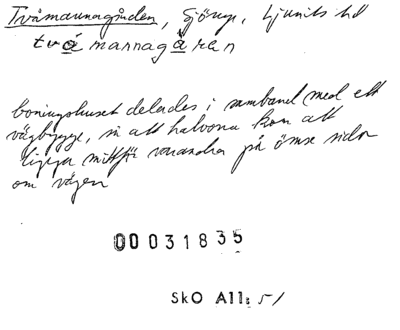 Tvåmannagården, Sjörup, Ljunits hd
tvåmannagåran
boningshuset delades i samband med ett
vägbygge, så att halvorna kom att
ligga mittför varandra på ömse sidor
om vägen
00031835
SkO All: 51